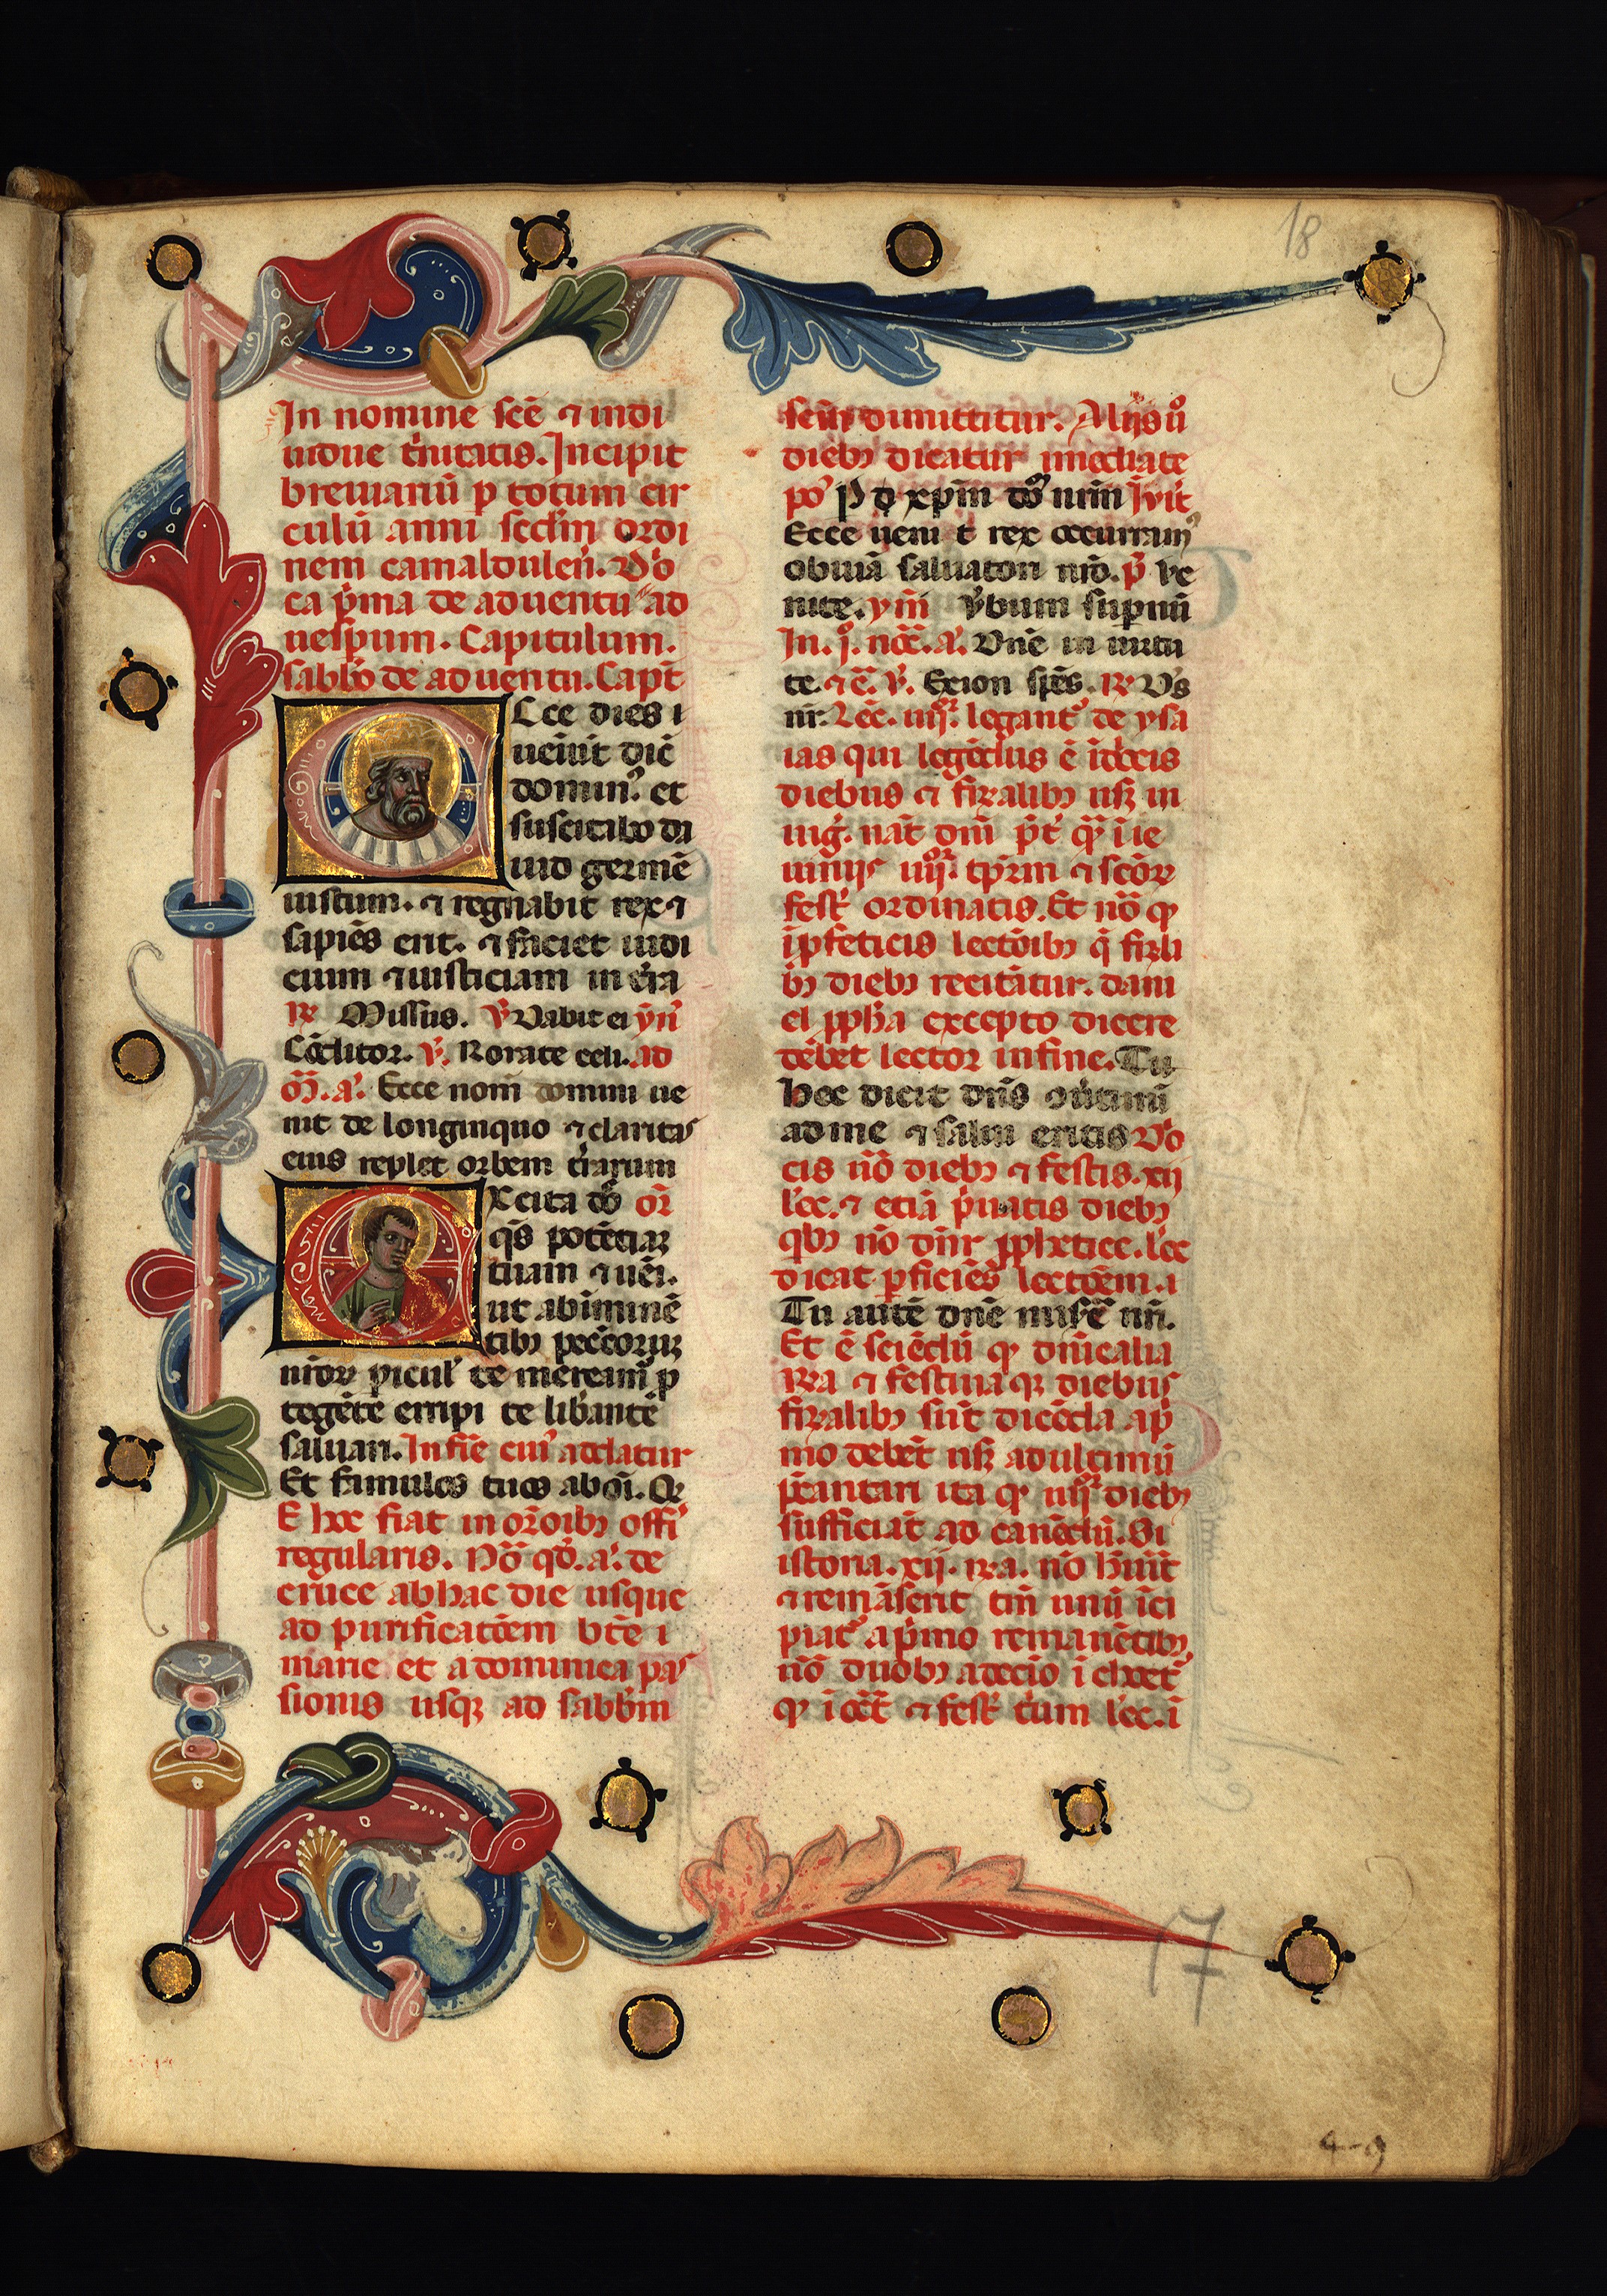 18
In nomine scē ⁊ indi
uidue t̾nitatis. Incipit
breuiariū p totum cir
culū anni sec̄dm ordi
nem camaldulen̄. Do
ca p̾ma de aduentu ad
uesp̄um. Capitulum.
sabb̄o de aduentu. Capt̄
Ecce dies i
ueniūt dic̄
domin⁹. et
suscitabo da
uid germē
iustum. ⁊ regnabit rex ⁊
sapiēs erit. ⁊ faciet iudi
cium ⁊ iusticiam in t̾ra
℞ Missus. ℣ Dabit ei ym̄
Cōditor. ℣. Rorate celi. ad
m̄. a̾. Ecce nom̄ domini ue
nit de longinquo ⁊ claritas
eius replet orbem t̾rarum
Excita dō or̄
qs̄ potētiaꝫ
tuam ⁊ uēi.
ut ab iminē
tibꝫ peccōruꝫ
nr̄oꝝ picul̾ te meream̄ p
tegēte erripi te lib̾ante
saluari. In fiē cui⁹ addatur
Et famulos tuos ab oī. Q
E hoc fiat in or̄oibꝫ offi
regularis. Nō qō. a̾. de
cruce ab hac die usque
ad purificatōem bt̄e
marie et a dominica pas
sionis usqꝫ ad sabb̄m
scm̄ dimittitur. Alijs ū
diebꝫ dicatur immediate
po᷒ P d xp̄m do᷒ nr̄m Iuit̄
Ecce ueni t rex occurram⁹
obuiā saluatori nr̄o. p̄ ve
nite. ym̄ v̾bum sup̄nū
In. j̊. noc̄. a̾. Dn̄e in uirtu
te. ⁊ c̄. ℣. Ex ion sp̄es. ℞ Ds
nr̄. Lec̄. iiijᵒʳ. legant᷒ de ysa
ias qui legēdus ē ī doc̄is
diebus ⁊ fīralibꝫ usꝫ in
uig̾. nat̄ dn̄i p̄t̄ qꝫ ī ie
iuniis iiijᵒʳ tp̄rm ⁊ scōꝝ
fest̾ ordinatis. Et nō qꝫ
ī pfeticis lectōibꝫ q̄ firli
bꝫ diebꝫ recitātur. dani
el pph̄a excepto dicere
debet lector in fine. Tu
hec dicit dn̄s 9u̾timi
ad me ⁊ salui eritis Do
cis nō diebꝫ ⁊ festis. xij
lec̄. ⁊ etiā p̾uatis diebꝫ
qbꝫ nō dn̄r pphetice. lec̄
dicat pficiēs lectōem. i
Tu autē dn̄e mis̾ere nr̄i.
Et ē sciēdū qꝫ dn̄icalia
℞a ⁊ festiua qꝫ diebus
firalibꝫ sūt dicēda a p̾
mo debēt usꝫ ad ultimū
p̾cantari ita qꝫ usqꝫ diebꝫ
sufficiāt ad canēdū. Si
istoria. xij. ℞a. nō h̾uīt
⁊ remāserit tm̄ unū īci
piat̾ a p̾mo remanētibꝫ
nō duobꝫ a decio i eb̄oet̾
qꝫ i oct̄ ⁊ fest̾ trium lec̄. i
17
4-9